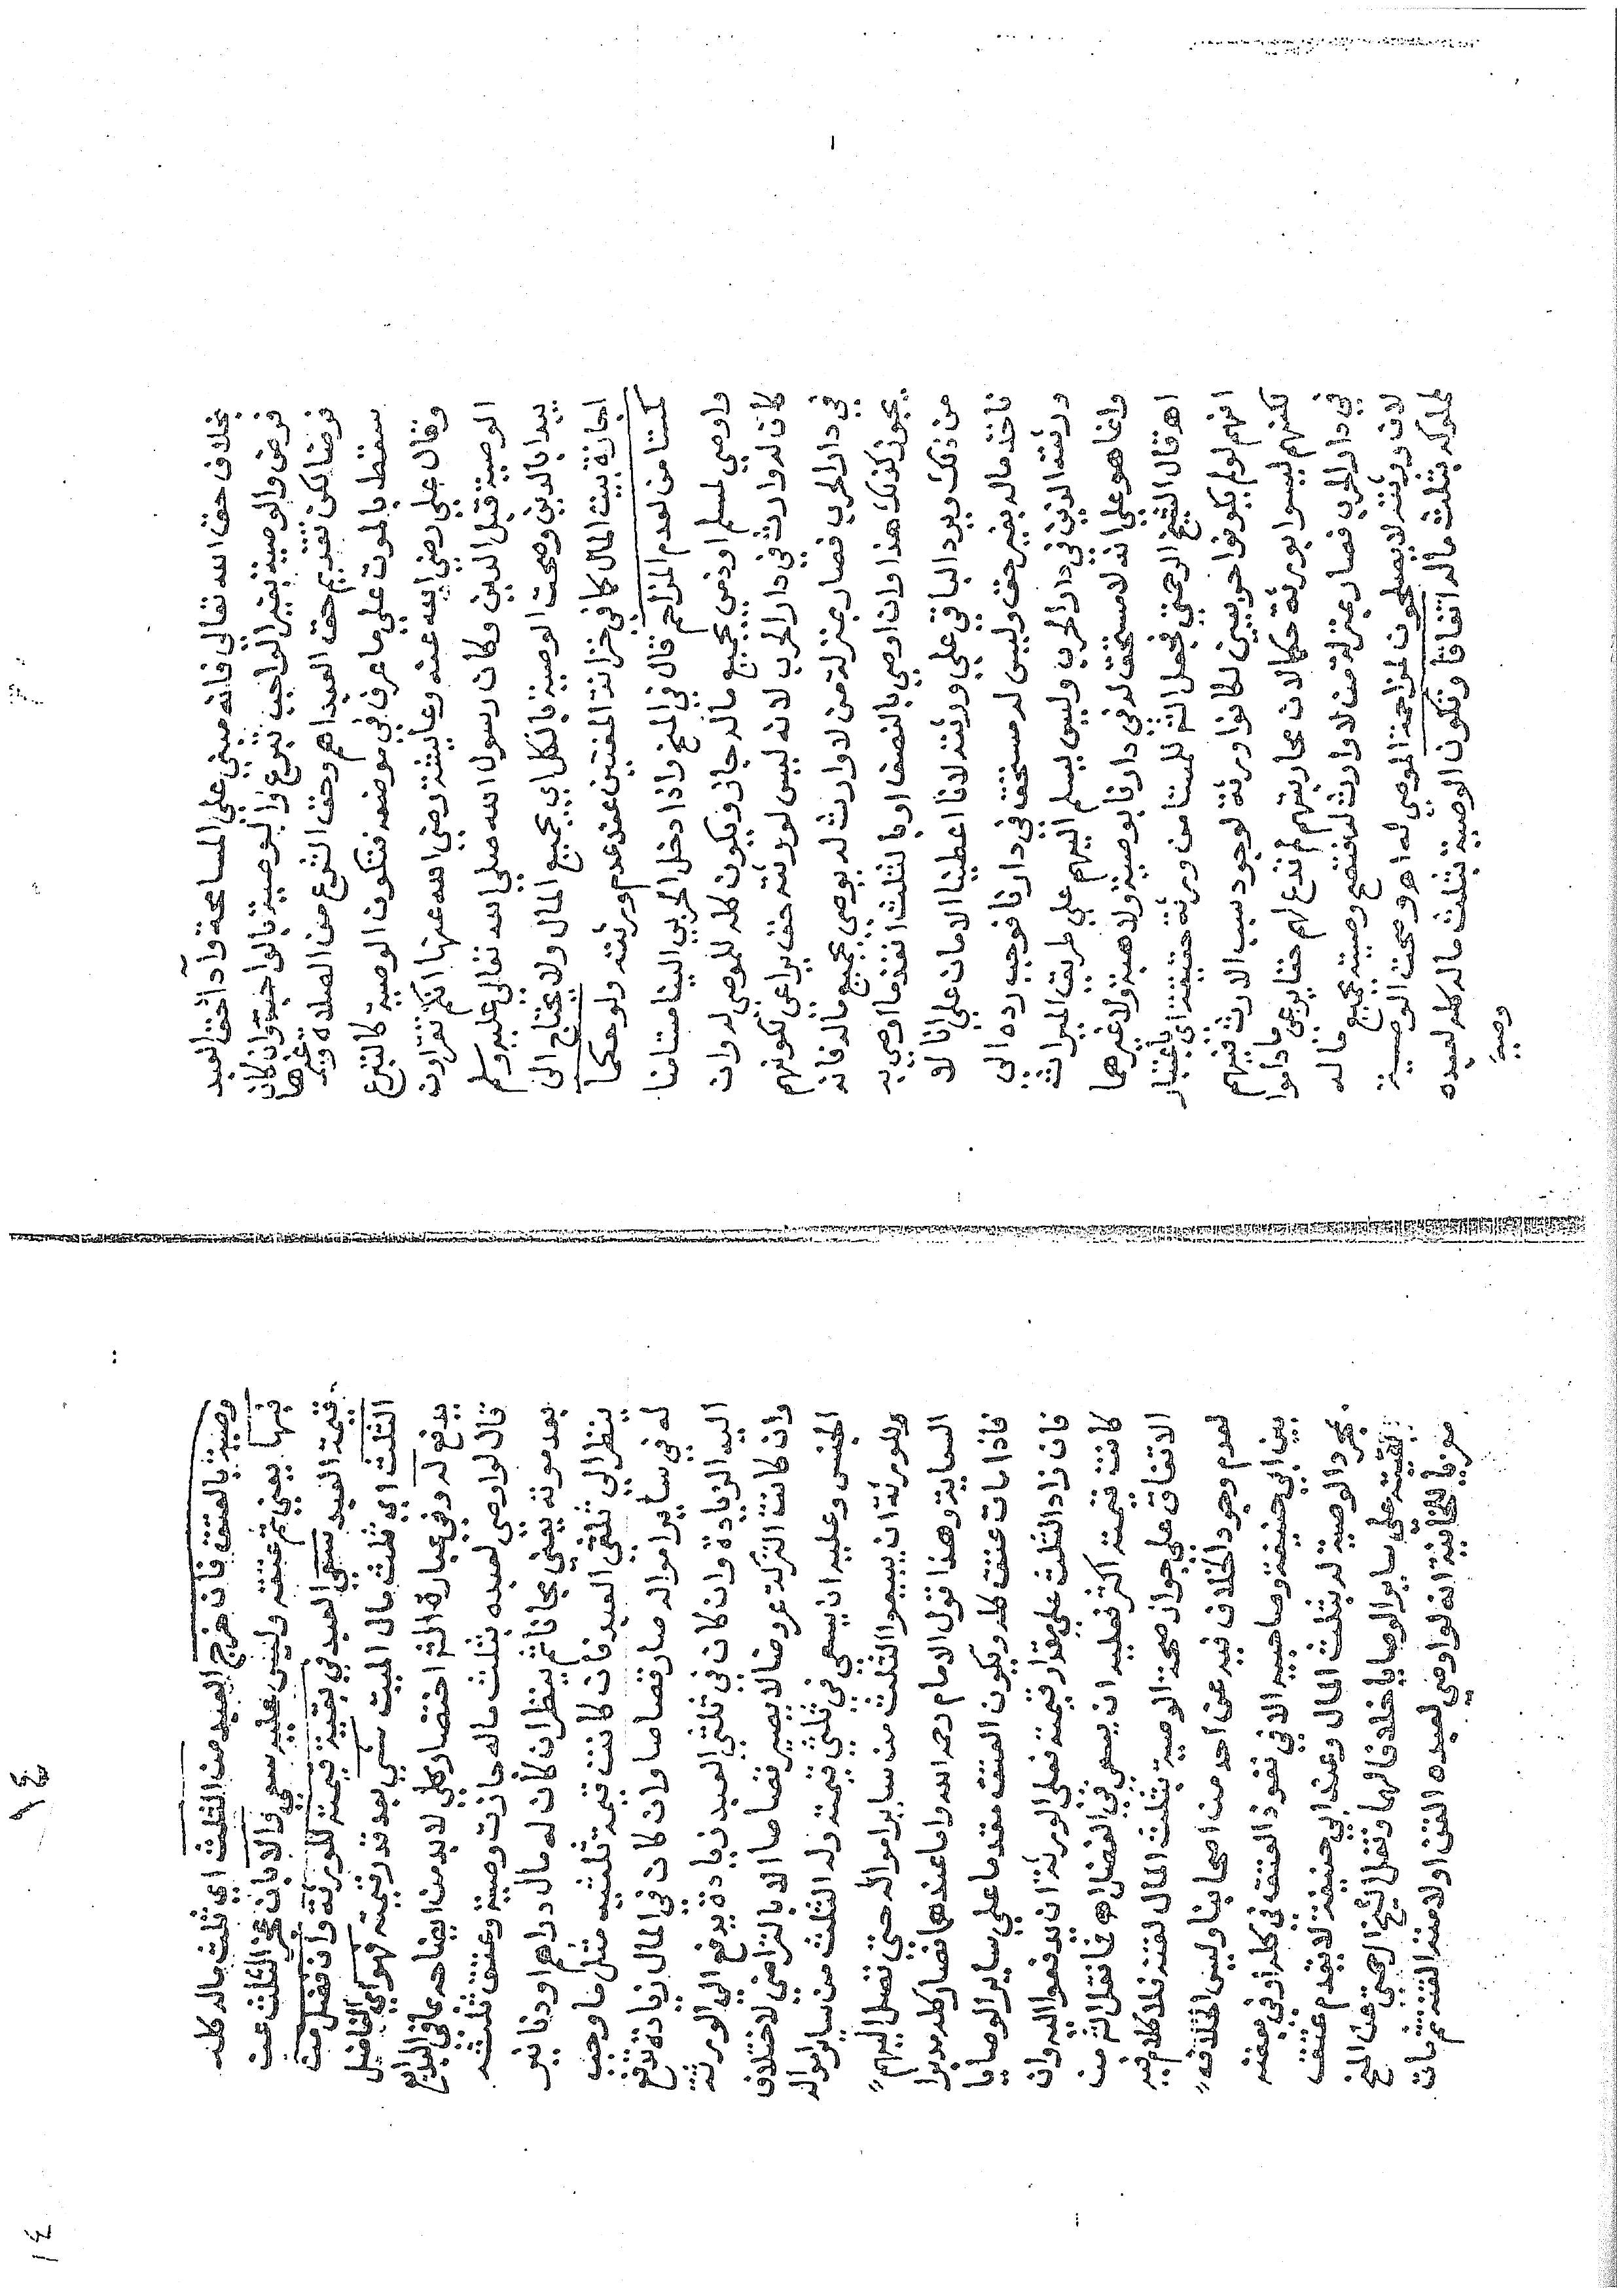 بخلاف حق الله تعالى فانه مبني على المسامحة واذا حق العبد
فرض والوصية بغير الواجب تبرع والوصية بالواجبة وان كان
فرضا لكن تقديم حق العبد اهم وحق الشرع من الصلاة وغيرها
سقط بالموت على ما عرف في موضعه فتكون الوصية كالتبرع
وقال علي رضي الله عنه وعايشة رضي الله عنها انكم تقرأون
الوصية قبل الدين وكان رسول الله صلى الله تعالى عليه وسلم
يبدا بالدين وصحت الوصية بالكل اي بجميع المال ولا يحتاج الى
اجازة بيت المال كما في خزانة المفتين عند عدم ورثته ولو حكما
كمستامن لعدم المزاحم قال في المنح واذا دخل الحربي الينا مستامنا
واوصى لمسلم او ذمي بجميع ماله جاز ويكون كله للموصى له وان
كان له وارث في دار الحرب لانه ليس لورثته حق يراعى لكونهم
في دار الحرب فصار بمنزلة من لا وارث له يوصي بجميع ماله فانه
يجوز كذلك هذا وان اوصى بالنصف او بالثلث انفذ ما اوصى به
من ذلك ويرد الباقي على ورثته لانا اعطينا الامان على انا لا
ناخذ ماله بغير حق وليس له مستحق في دارنا فوجب رده الى
ورثته الذين في دار الحرب وليس يسلم اليهم على طريق الميراث
وانما هو على انه لا مستحق له في دارنا بوصية ولا هبة ولا غيرهما
اهـ قال الشيخ الرحمتي فجعل الشر للمستامن ورثة حقيقة اي باعتبار
انهم لو لم يكونوا حربيين لكانوا ورثة لوجود سبب الارث فيهم
لكنهم ليسوا بورثة حكما لان محاربتهم لم تدع لهم حقا يرعى ما داموا
في دار الحرب فصار بمنزلة من لا وارث له فتصح وصيته بجميع ماله
لان ورثته لا يصلحون لمزاحمة الموصى له اهـ وصحت الوصية
لمملوكه بثلث ماله اتفاقا وتكون الوصية بثلث ماله كله لعبده
وصية
وصية بالعتق فان خرج العبد من الثلث اي ثلث ماله كله
فبها يعني تم عتقه وليس عليه سعي والا بان عجز الثلث عن
قيمة العبد سعى العبد في بقية قيمته للورثة وان فضل من
الثلث اي ثلث مال الميت شي بعد قدر قيمته فهو اي الفاضل
يدفع له وفي عبارة الشر اختصار كلي لا بد من ايضاحه كما في البدايع
قال لو اوصى لعبده بثلث ماله جازت وصيته وعتق ثلثه
بعد موته يعني مجانا ثم ينظر ان كان له مال دراهم او دنانير
ينظر الى ثلثي العبد فان كانت قيمة ثلثيه مثل ما وجب
له في ساير امواله صار قصاصا وان كان في المال زيادة تدفع
اليه الزيادة وان كان في ثلثي العبد زيادة يدفع الى الورثة
وان كانت التركة عروضا لا يصير قصاصا الا بالتراضي لاختلاف
الجنس وعليه ان يسعى في ثلثي قيمته وله الثلث من ساير امواله
وللورثة ان يبيعوا الثلث من ساير امواله حتى تصل اليهم
السعاية وهذا قول الامام رحمه الله واما عندهما فصار كله مدبرا
فاذا مات عتق كله ويكون العتق مقدما على ساير الوصايا
فان زاد الثلث على مقدار قيمته فعلى الورثة ان يدفعوا اليه وان
كانت قيمته اكثر فعليه ان يسعى في الفضل اهـ فما نقل الشر من
الاتفاق على جواز صحة الوصية بثلث المال لقنه فلا كلام فيه
لعدم وجود الخلاف فيه عن احد من اصحابنا وليس الخلاف
بين ابي حنيفة وصاحبيه الا في نفوذ العتق في كله او في بعضه
بمجرد الوصية له بثلث المال وعند ابي حنيفة لا يقدم عتق
بقيته على ساير الوصايا خلافا لهما ونقل الشيخ الرحمتي عن المنح
معزيا للخانية انه لو اوصى لعبده القن او لامته القنة ثم مات
١٤